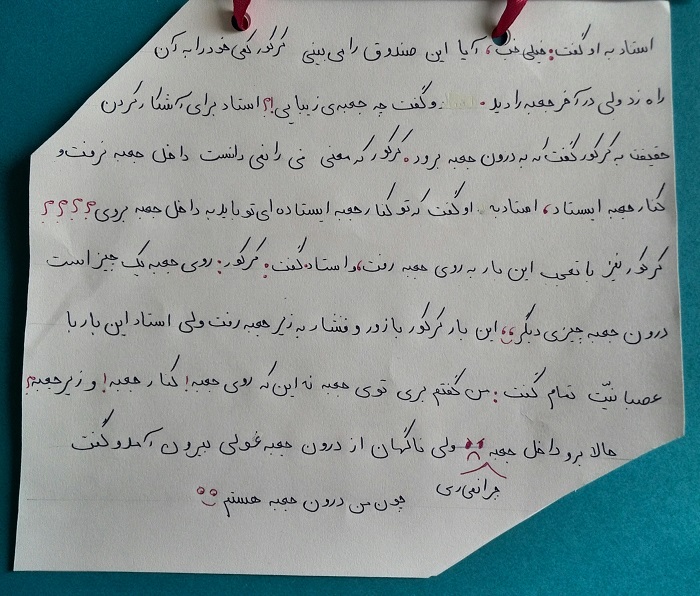 استاد به او گفت: خیلی خب، آیا این صندوق را می بینی کرکور کمی خود را به آن
راه زد ولی در آخر جعبه را دید. و گفت چه جعبه ی زیبایی!؟ استاد برای آشکار کردن
حقیقت به کرکور گفت که به درون جعبه برود. کرکور که معنی را نمی دانست داخل جعبه نرفت و
کنار جعبه ایستاد، استاد به او گفت که تو کنار جعبه ایستاده ای تو باید به داخل جعبه بروی؟؟؟؟
کرکور نیز با تعجب این بار به روی جعبه رفت، و استاد گفت: کرکور: روی جعبه یک چیز است
درون جعبه چیزی دیگر،، این بار کرکور با زور و فشار به زیر جعبه رفت ولی استاد این بار با
عصبانیّت تمام گفت: من گفتم بری توی جعبه نه این که روی جعبه! کنار جعبه! و زیر جعبه؟
حالا برو داخل جعبه ولی ناگهان از درون جعبه غولی بیرون آمد و گفت
چرا نمی ری
چون من درون جعبه هستم